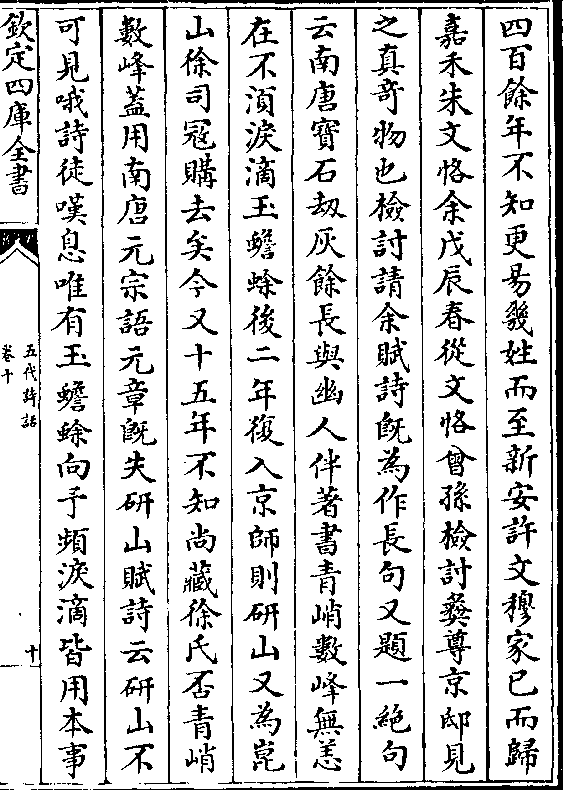 四百餘年不知更易幾姓而至新安許文穆家已而歸
嘉禾朱文恪余戊辰春從文恪曾孫檢討彝尊京邸見
之真奇物也檢討請余賦詩既為作長句又題一絶句
云南唐寶石劫灰餘長與幽人伴著書青峭數峰無恙
在不湏淚滴玉蟾蜍後二年復入京師則研山又為崑
山徐司冦購去矣今又十五年不知尚藏徐氏否青峭
數峰蓋用南唐元宗語元章既失研山賦詩云研山不
可見哦詩徒嘆息唯有玉蟾蜍向予頻淚滴皆用本事
欽定四庫全書
五代詩話
卷十
十